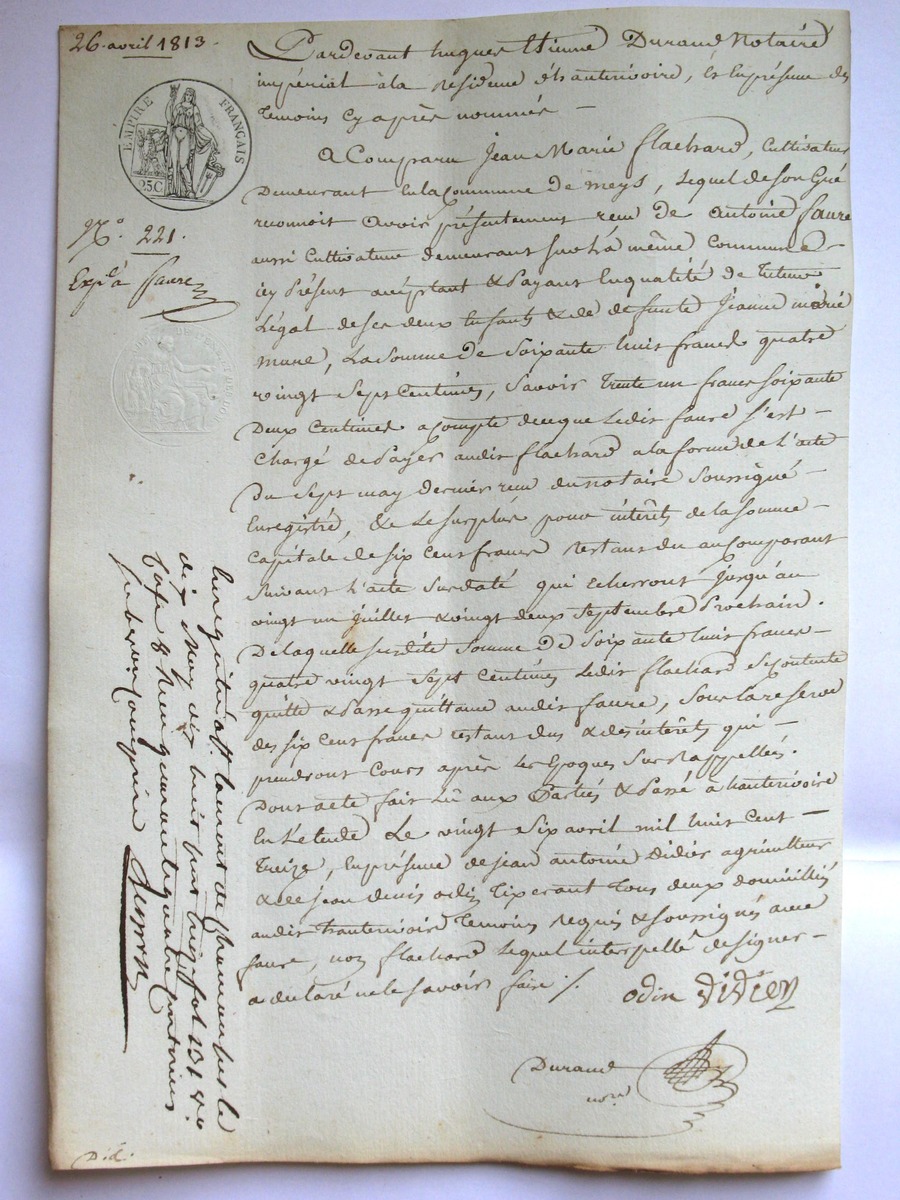 26 avril 1813.
EMPIRE FRANÇAIS
25 C
N.o 221.
Exp.é à faure
Pardevant hugues Etienne Durand Notaire
impérial à la Residence d'hauterivoire, & En présence des
Temoins Cy après nommés —
a Comparu Jean Marie flachard, Cultivateur
Demeurant En la Commune De meys, Lequel de Son Gré
reconnoit avoir présentement reçu De antoine faure
aussi Cultivateur demeurant Sur la même Commune —
icy Présent acceptant & Payant En qualité De Tuteur
Légal de Ses deux Enfants & de defunte Jeanne marie
mure, La Somme De Soixante huit francs quatre
vingt Sept Centimes, Savoir Trente un francs Soixante
Deux Centimes a Compte de ce que Ledit faure S'est —
Chargé de Payer audit flachard a la forme de L'acte
Du Sept may dernier reçu du notaire Soussigné —
Enregistré, & Le Surplus pour intérêts de la Somme —
Capitale de Six Cent francs restans du au Comparant
Suivant L'acte Surdaté qui Echerront Jusqu'au
vingt un Juillet & vingt deux Septembre Prochain.
De laquelle Susdite Somme De Soixante huit francs —
quatre vingt Sept Centimes Ledit flachard Se Contente
quitte & Passe quittance audit faure, Sous La reserve
des Six Cent francs restant dus & des intérêts qui —
prendront Cours après Les Epoques Sus Rappellées.
Dont acte fait Lû aux Parties & Passé à hauterivoire
En L'etude Le vingt Six avril mil huit Cent —
Treize, En présence de jean antoine Didier agriculteur
& de jean denis odin Tixerant Tous deux domiciliés
audit hauterivoire Temoins requis & Soussignés avec
faure, non flachard Lequel interpellé de Signer —
a declaré ne le Savoir faire ./.
odin Didier
Durand
no.re
Enregistré à St Laurent de Chamousset le
dix May dix huit cent treize fol 131
quarante quatre centimes
subvention comprise